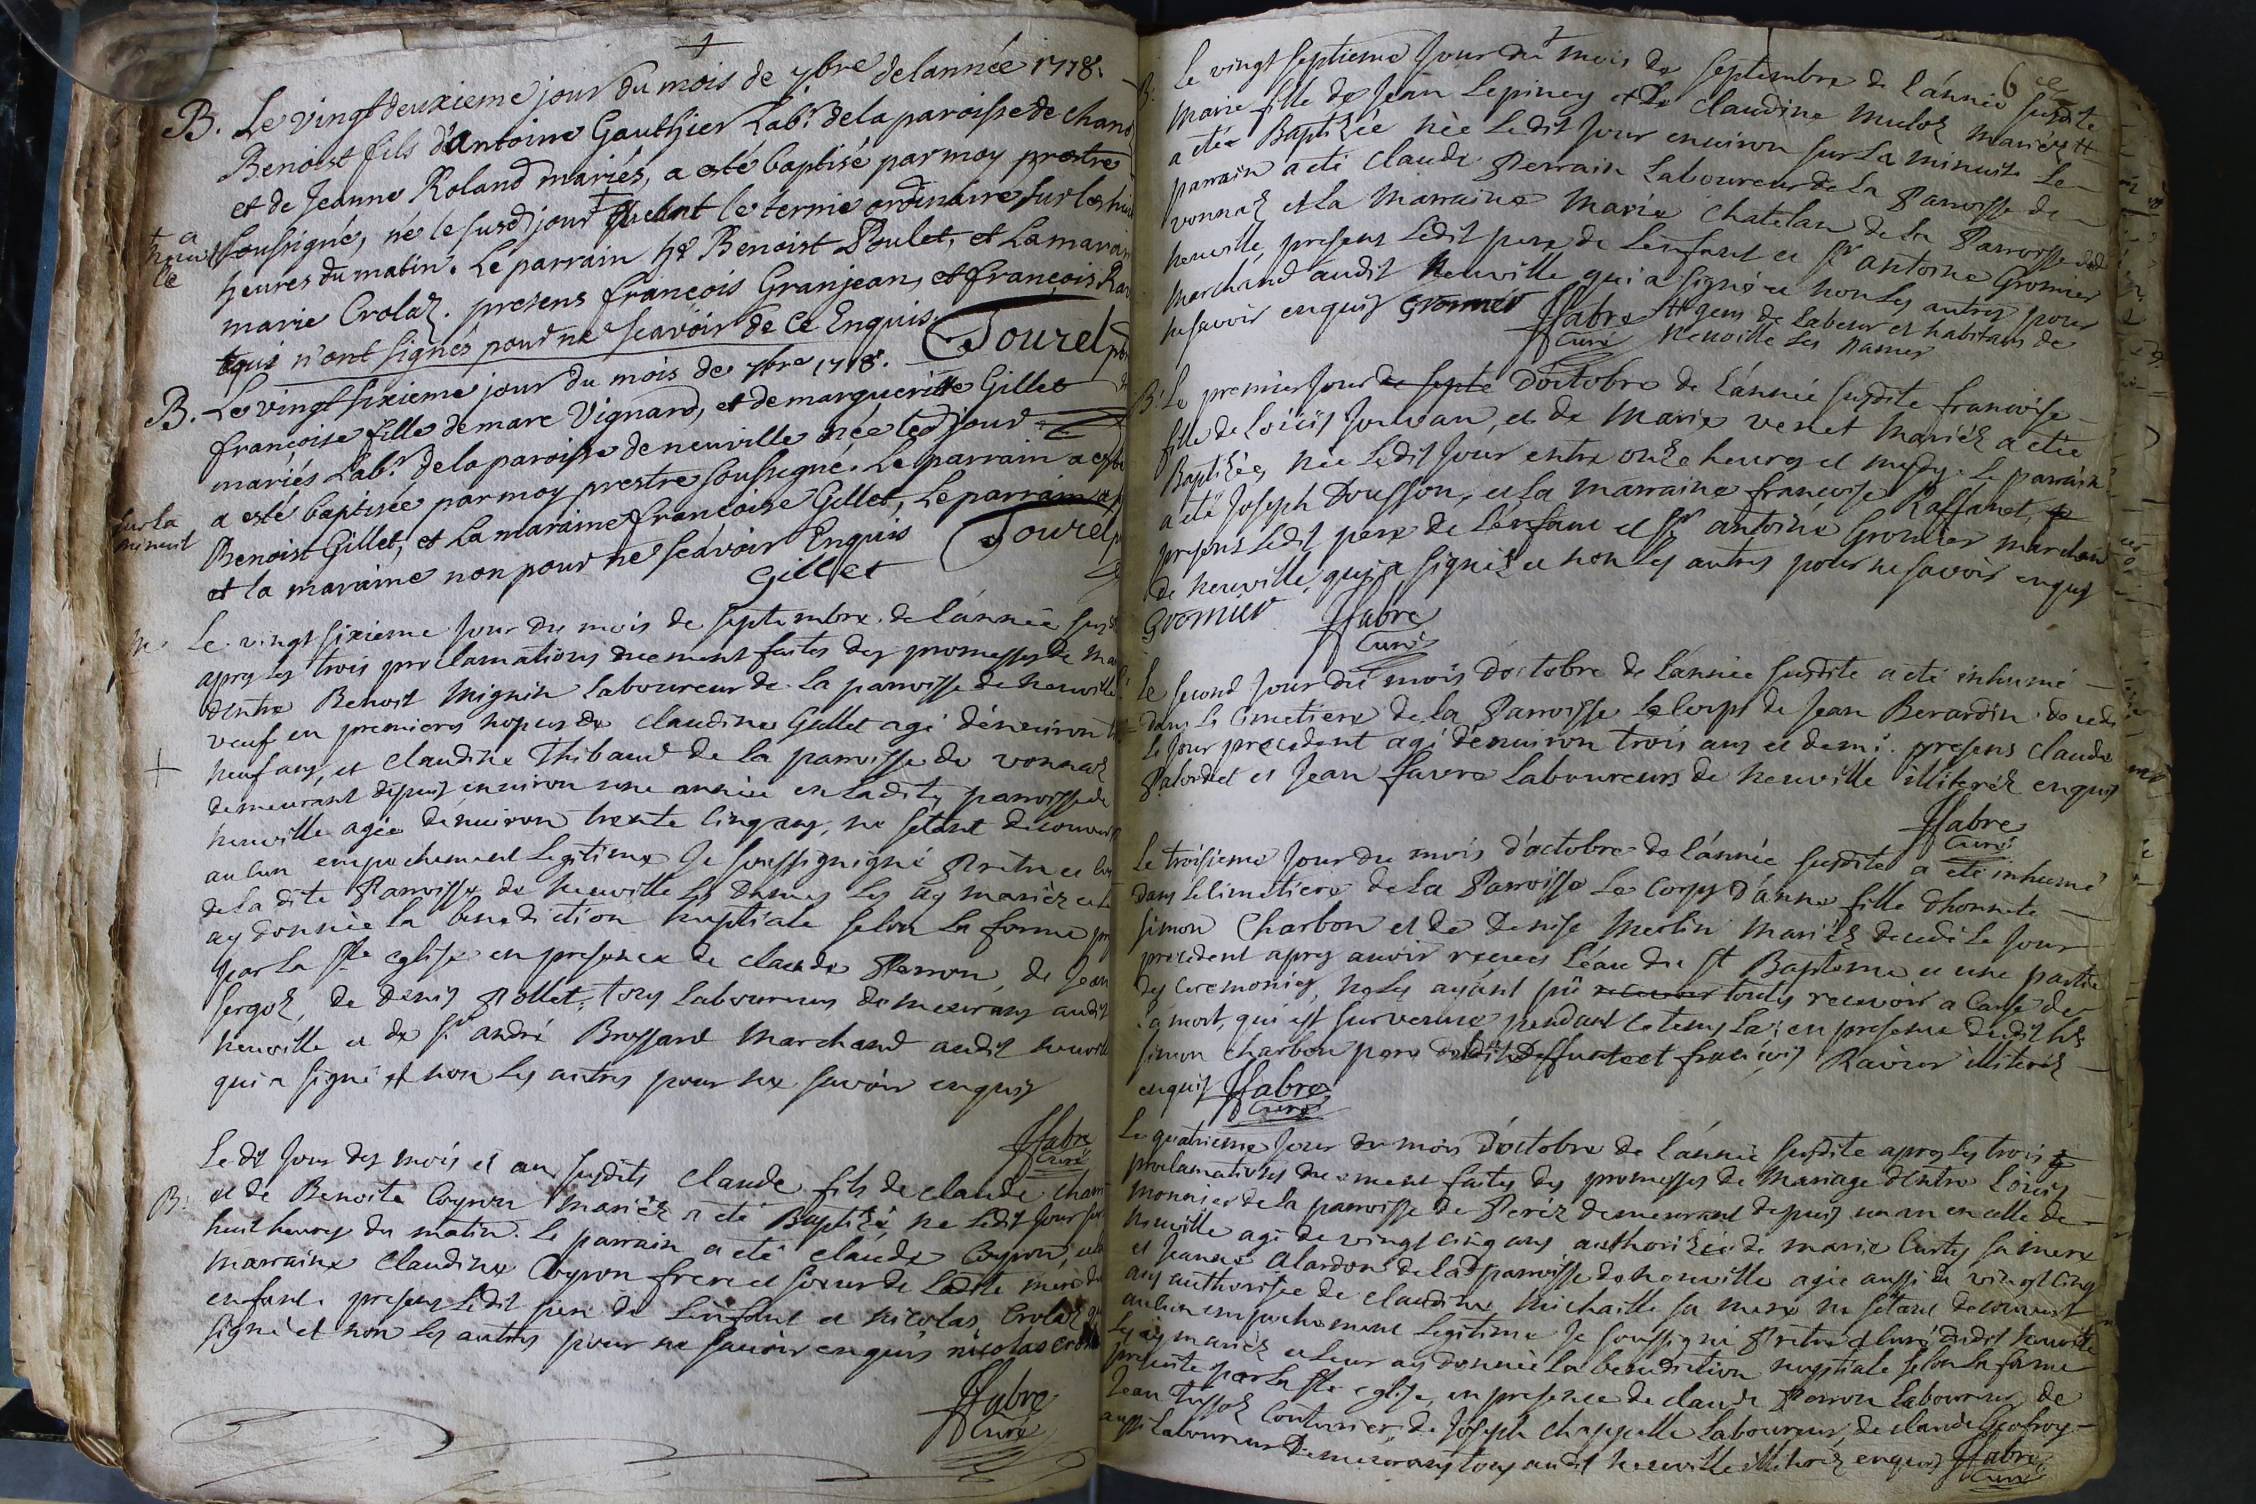 B. Le vingt deuxieme jour du mois de 7bre de lannée 1718.
Benoist fils d'antoine Gauthier Labr. de la paroisse de chano
et de Jeanne Roland mariés, a esté baptisé par moy prestre
soussigné, né le susd jour le terme ordinaire sur les huit
heures du matin. Le parrain h. Benoist Poulet, et La marain
marie Crolaz. presens françois Granjean, et françois Rav
qui n'ont signés pour ne scavoir de ce Enquis.
Tourel
B. Le vingt sixieme jour du mois de 7bre 1718.
françoise fille de marc Vignard, et de marguerite Gillet
mariés Labr. de la paroisse de neuville née led jour
sur la
minuit
a esté baptisée par moy prestre soussigné. Le parrain a esté
Benoist Gillet, et La maraine françoise Gillet, Le parrain
et la maraine non pour ne scavoir Enquis
Tourel
Gillet
Le vingt sixieme Jour du mois de septembre de l'année
apres les trois proclamations duement faites des promesses de ma
dentre Benoit Mignin Laboureur de la parroisse de neuville
veuf en premieres nopces de claudine Gillet agé d'environ
neuf ans, et claudine Thibaud de la parroisse de vonnaz
demeurant depuis environ une année en ladite parroisse de
neuville agée denviron trente cinq ans, ne setant decouvert
aucun empechement legitime Je soussignigné Prêtre et
de la dite Parroisse de neuville les Dames les ay mariéz et
ay donnée la benediction nuptiale selon la forme
par la Ste eglise en presence de claude Perron, de Jean
sergoz, de denis Rollet, tous Laboureurs demeurans audit
neuville et de Sr andré Brossard Marchand audit neuville
qui a signé et non les autres pour ne savoir enquis
ffabre
Curé
B: Le dit Jour des mois et an susdits claude fils de claude
et de Benoite Coyron mariéz a eté Baptizé, né ledit Jour sur
huit heures du matin. Le parrain a eté claude Coyron,
marraine claudine Coyron frere et soeur de Ladite mere de
enfant. presens Ledit pere de Lenfant et nicolas Crolaz
signé et non les autres pour ne savoir enquis nicolas
ffabre
Curé
6
B: Le vingt septieme Jour du mois de septembre de l'année susdite
Marie fille de Jean Lepiney et de Claudine Muloz mariéz
a etée Baptizée née Ledit Jour environ sur La minuit Le
parrain a eté claude Perrain Laboureur de La Parroisse de
vonnaz et La Marraine Marie chatelan de La Parroisse dud
neuville, presens Ledit pere de Lenfant et Sr antoine Gromier
Marchand audit neuville qui a signé et non les autres pour
ne savoir enquis Gromier
ffabre
Curé
gens de Labeur et habitans de
Neuville les Dames
B: Le premier Jour de septe doctobre de l'année susdite francoise
fille de Loüis Jouvan, et de Marie venet mariéz a etée
Baptizée, née Ledit Jour entre onze heures et midy. Le parrain
a eté Joseph Douffon, et La marraine francoise Raffanet,
presens Ledit pere de l'enfant et Sr antoine Gromier marchand
de neuville, qui a signéz et non les autres pour ne savoir enquis
Gromier
ffabre
Curé
Le second Jour du mois d'octobre de l'année susdite a eté inhumé
dans le Cimetiere de la Parroisse Le corps de Jean Berardin decedé
le Jour precedent agé denviron trois ans et demi. presens claude
Palordet et Jean favre Laboureurs de neuville illiteréz enquis
ffabre
Curé
Le troisieme Jour du mois d'octobre de l'année susdite a eté inhumé
dans le Cimetiere de La Parroisse Le Corps d'anne fille dhonnete
simon Charbon et de denise Merlin mariéz decedé le Jour
precedent apres avoir recus l'eau du St Bapteme et une partie
des ceremonies, ne les ayant pû recevoir toutes recevoir a cause de
la mort, qui est survenue pendant ce tems la; en presence dudit
simon charbon pere de laditte Deffunte et francois Ravier illiteréz
enquis ffabre
Curé
Le quatrieme Jour du mois d'octobre de l'année susdite apres les trois
proclamations duement faites des promesses de Mariage dentre Loüis
Monnier de la parroisse de Peréz demeurant depuis un an en celle de
neuville agé de vingt cinq ans authorizée de marie Curtes sa mere
et Jeanne Alardon de lad parroisse de neuville agée aussi de vingt cinq
ans authorisée de claudine Michaille sa mere ne setant decouvert
aucun empechement legitime Je soussigné Prêtre et curé dudit neuville
les ay mariéz et leur ay donnée la benediction nuptiale selon la forme
prescrite par la Ste eglise, en presence de claude Perron laboureur, de
Jean Tissot Couturier, de Joseph chappelle Laboureur, de claude Geofroy
aussi Laboureur Demeurans tous audit neuville illiteréz enquis ffabre
Curé